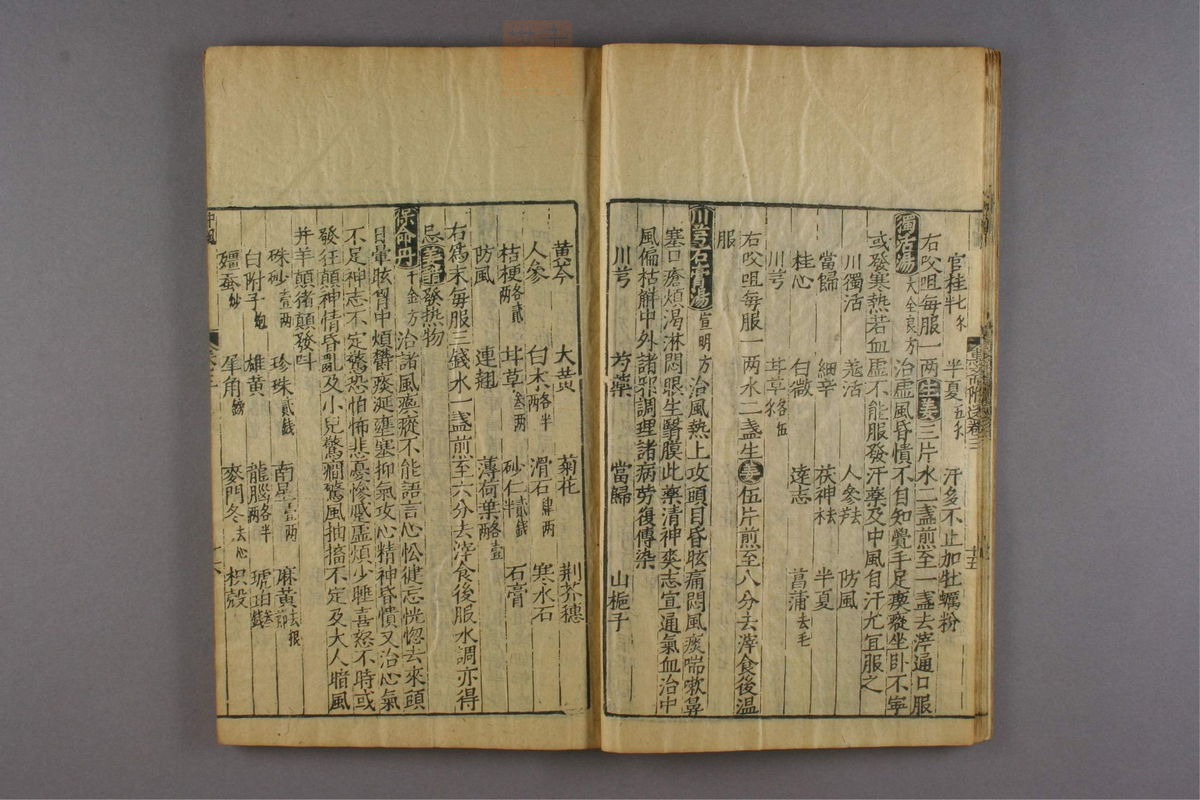 官桂七錢半 半夏五錢 汗多不止加牡蠣粉
右㕮咀每服一兩生姜三片水二盞煎至一盞去滓通口服
獨活湯 大全良方 治虛風昏憒不自知覺手足瘈瘲坐卧不寧
或發寒熱若血虛不能服發汗藥及中風自汗尤宜服之
川獨活 羗活 人參 防風
當歸 細辛 茯神 半夏
桂心 白微 遠志 菖蒲去毛
川芎 甘草各伍
右㕮咀每服一兩水二盞生姜伍片煎至八分去滓食後溫
服
川芎石膏湯 宣明方 治風熱上攻頭目昏眩痛悶風痰喘嗽鼻
塞口瘡煩渴淋悶眼生瞖膜此藥清神爽志宣通氣血治中
風偏枯觧中外諸邪調理諸病劳復傳染
川芎 芍藥 當歸 山梔子
黄芩 大黄 菊花 荆芥穗
人參 白朮各半兩 滑石肆兩 寒水石
桔梗各貳兩 甘草叁兩 砂仁貳錢半 石膏
防風 連翹 薄荷葉各壹兩
右為末每服三錢水一盞煎至六分去滓食後服水調亦得
忌姜醋發热物
保命丹 千金方 治諸風瘈瘲不能語言心忪健忘恍惚去來頭
目暈眩胷中煩欝痰涎壅塞抑氣攻心精神昏憒又治心氣
不足神志不定驚恐怕怖悲憂慘慼虛煩少睡喜怒不時或
發狂顛神情昏亂及小兒驚癎驚風抽搐不定及大人暗風
并羊顛猪顛發呌
珠砂壹兩 珍珠貳錢 南星壹兩 麻黄去根
白附子炮 雄黄 龍腦各半兩 琥珀叁錢
殭蚕炒 犀角鎊 麥門冬去心 枳殼
中風